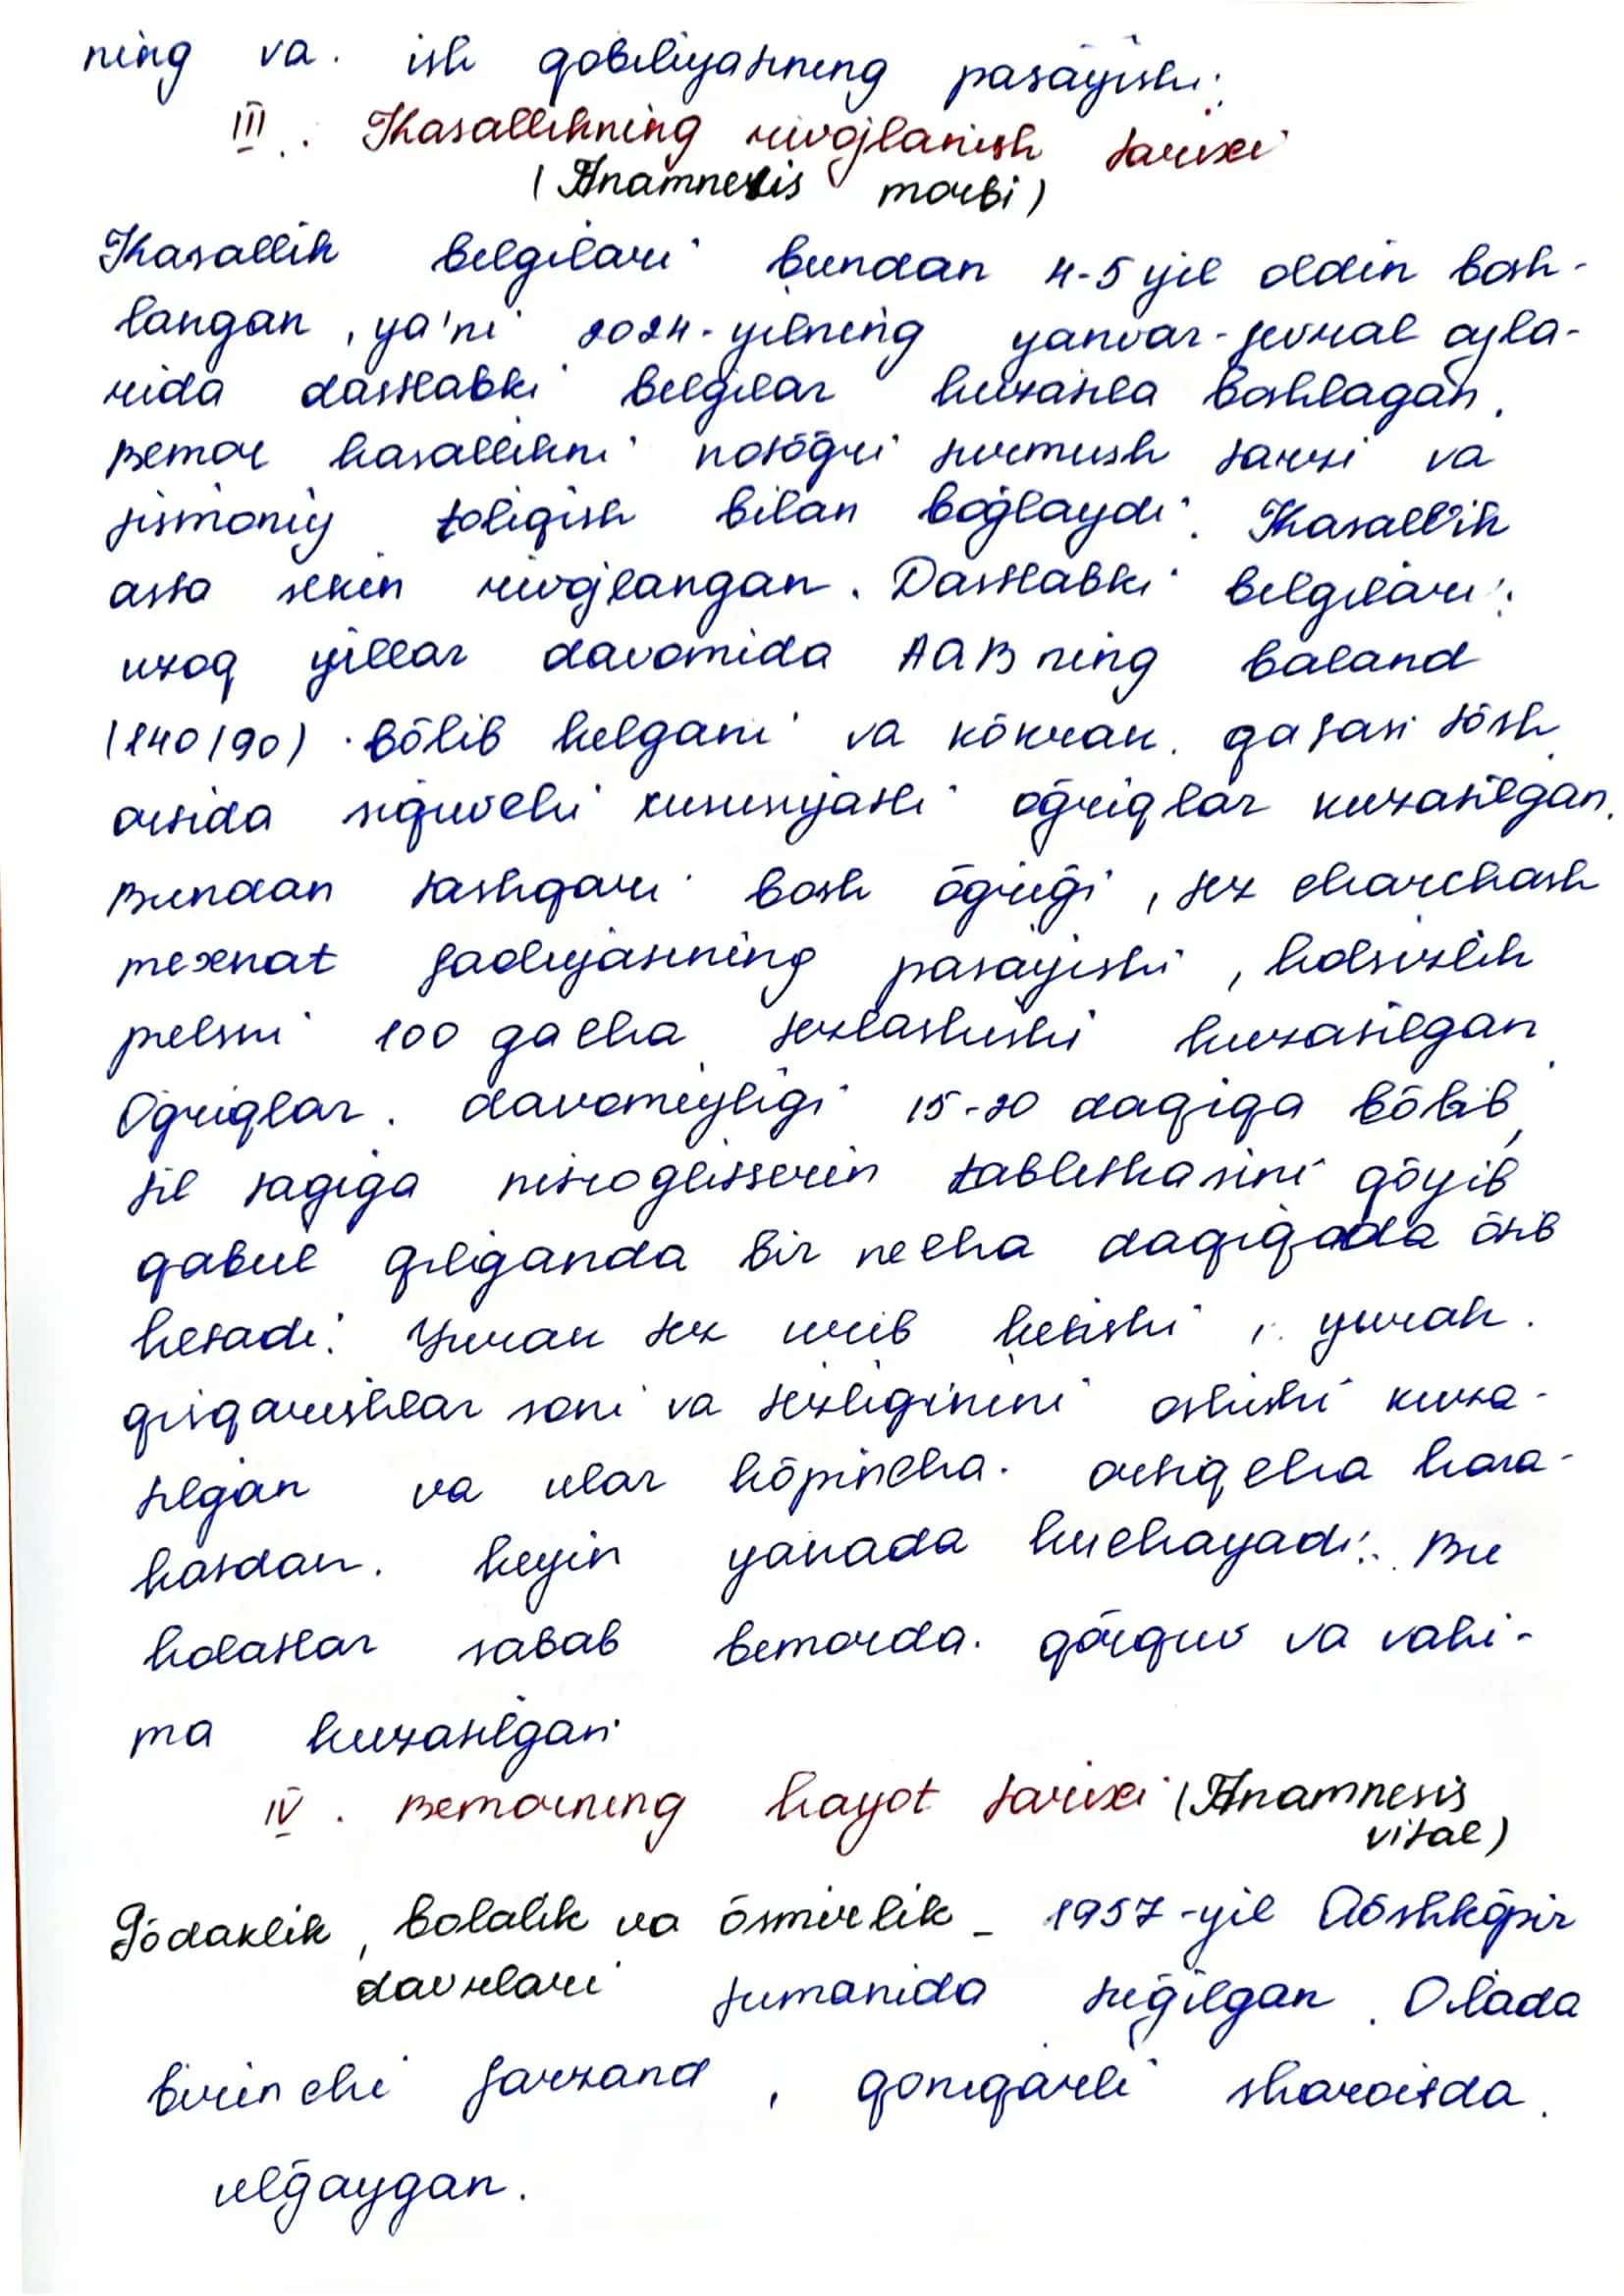 ning va ish qobiliyatining pasayishi.
III. Kasallikning rivojlanish tarixi
(Anamnesis morbi)
Kasallik belgilari bundan 4-5 yil oldin bosh-
langan, ya'ni 2024-yilning yanvar-fevral oyla-
rida dastlabki belgilar kuzatila boshlagan.
Bemor kasallikni notõg̃ri turmush tarzi va
jismoniy toliqish bilan bog̃laydi. Kasallik
asta sekin rivojlangan. Dastlabki belgilari:
uzoq yillar davomida AQB ning baland
(140/90) bõlib kelgani va kõkrak qafasi tõsh
ortida siquvchi xususiyatli og̃riqlar kuzatilgan.
Bundan tashqari bosh õgrig̃i, tez charchash
mexnat faoliyatining pasayishi, holsizlik
pulsni 100 gacha tezlashishi kuzatilgan.
Og̃riqlar davomiyligi 15-20 daqiqa bõlib,
til tagiga nitroglitserin tabletkasini qõyib
qabul qilganda bir necha daqiqada õtib
ketadi. Yurak tez urib ketishi, yurak
qisqarishlar soni va tezliginini oshishi kuza-
tilgan va ular kõpincha ortiqcha hara-
katdan keyin yanada kuchayadi. Bu
holatlar sabab bemorda qõrquv va vahi-
ma kuzatilgan
IV. Bemorning hayot tarixi (Anamnesis
vitae)
Gõdaklik, bolalik va õsmirlik - 1957-yil Qõshkõpir
davrlari tumanida tug̃ilgan. Oilada
birinchi farzand, qoniqarli sharoitda
ulg̃aygan.